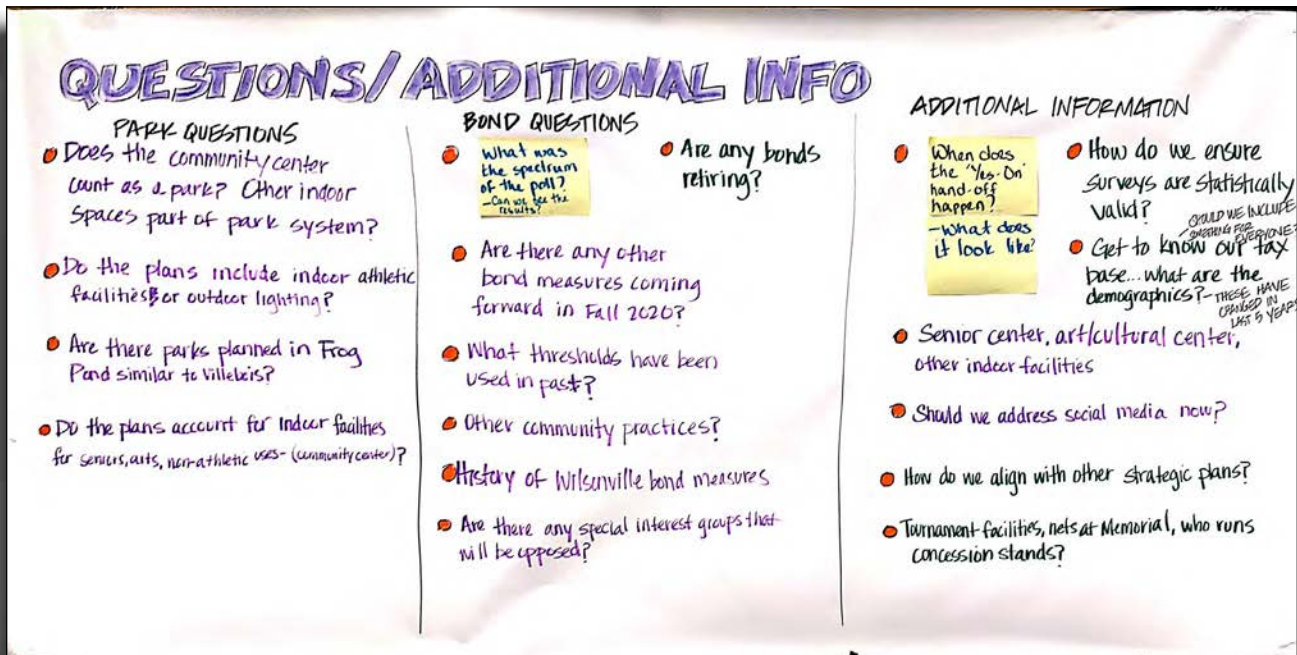 QUESTIONS/ADDITIONAL INFO
PARK QUESTIONS
Does the community center
count as a park? Other indoor
spaces part of park system?
Do the plans include indoor athletic
facilities or outdoor lighting?
Are there parks planned in Frog
Pond similar to Villebois?
Do the plans account for indoor facilities
for seniors, arts, non-athletic uses- (community center)?
BOND QUESTIONS
What was
the spectrum
of the poll?
-Can we see the
results?
Are any bonds
retiring?
Are there any other
bond measures coming
forward in Fall 2020?
What thresholds have been
used in past?
Other community practices?
History of Wilsonville bond measures
Are there any special interest groups that
will be opposed?
ADDITIONAL INFORMATION
When does
the "Yes-On"
hand-off
happen?
-What does
it look like?
How do we ensure
surveys are statistically
valid?
- SHOULD WE INCLUDE
SOMETHING FOR
EVERYONE?
Get to know our tax
base...what are the
demographics?
- THESE HAVE
CHANGED IN
LAST 5 YEARS
Senior center, art/cultural center,
other indoor facilities
Should we address social media now?
How do we align with other strategic plans?
Tournament facilities, nets at Memorial, who runs
concession stands?